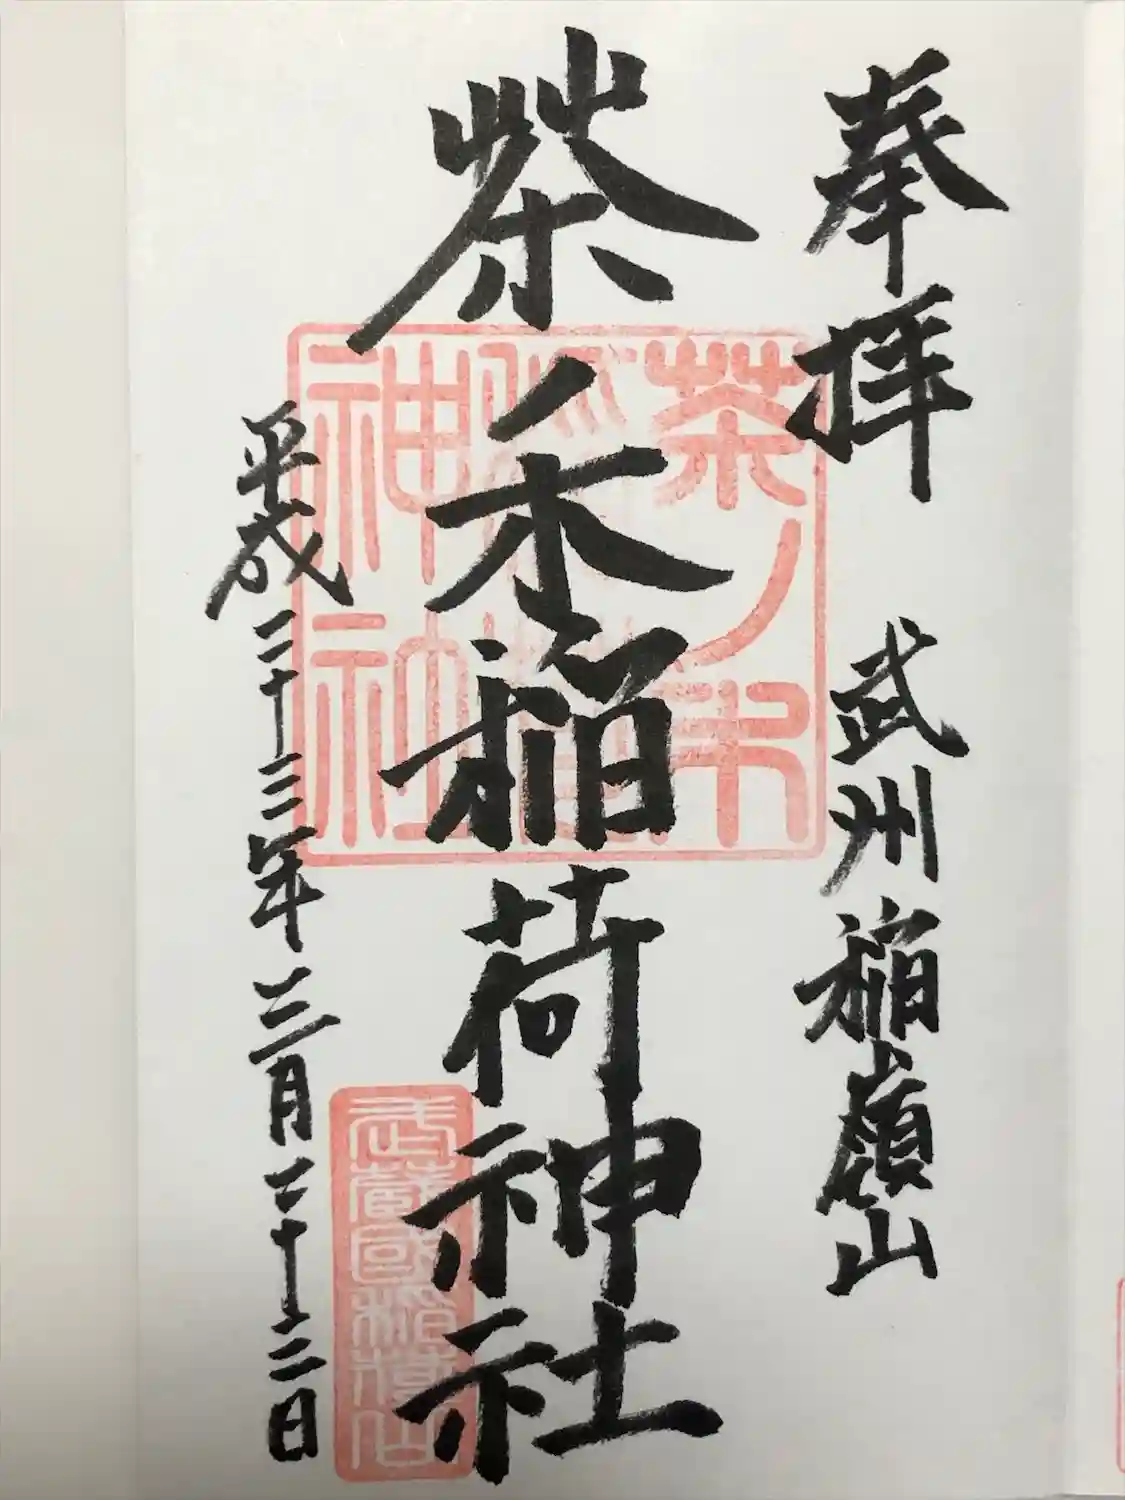 奉拝 武州稲嶺山
茶ノ木稲荷神社
平成二十三年三月二十二日
茶ノ木
稲荷
神社
武蔵國稲嶺山